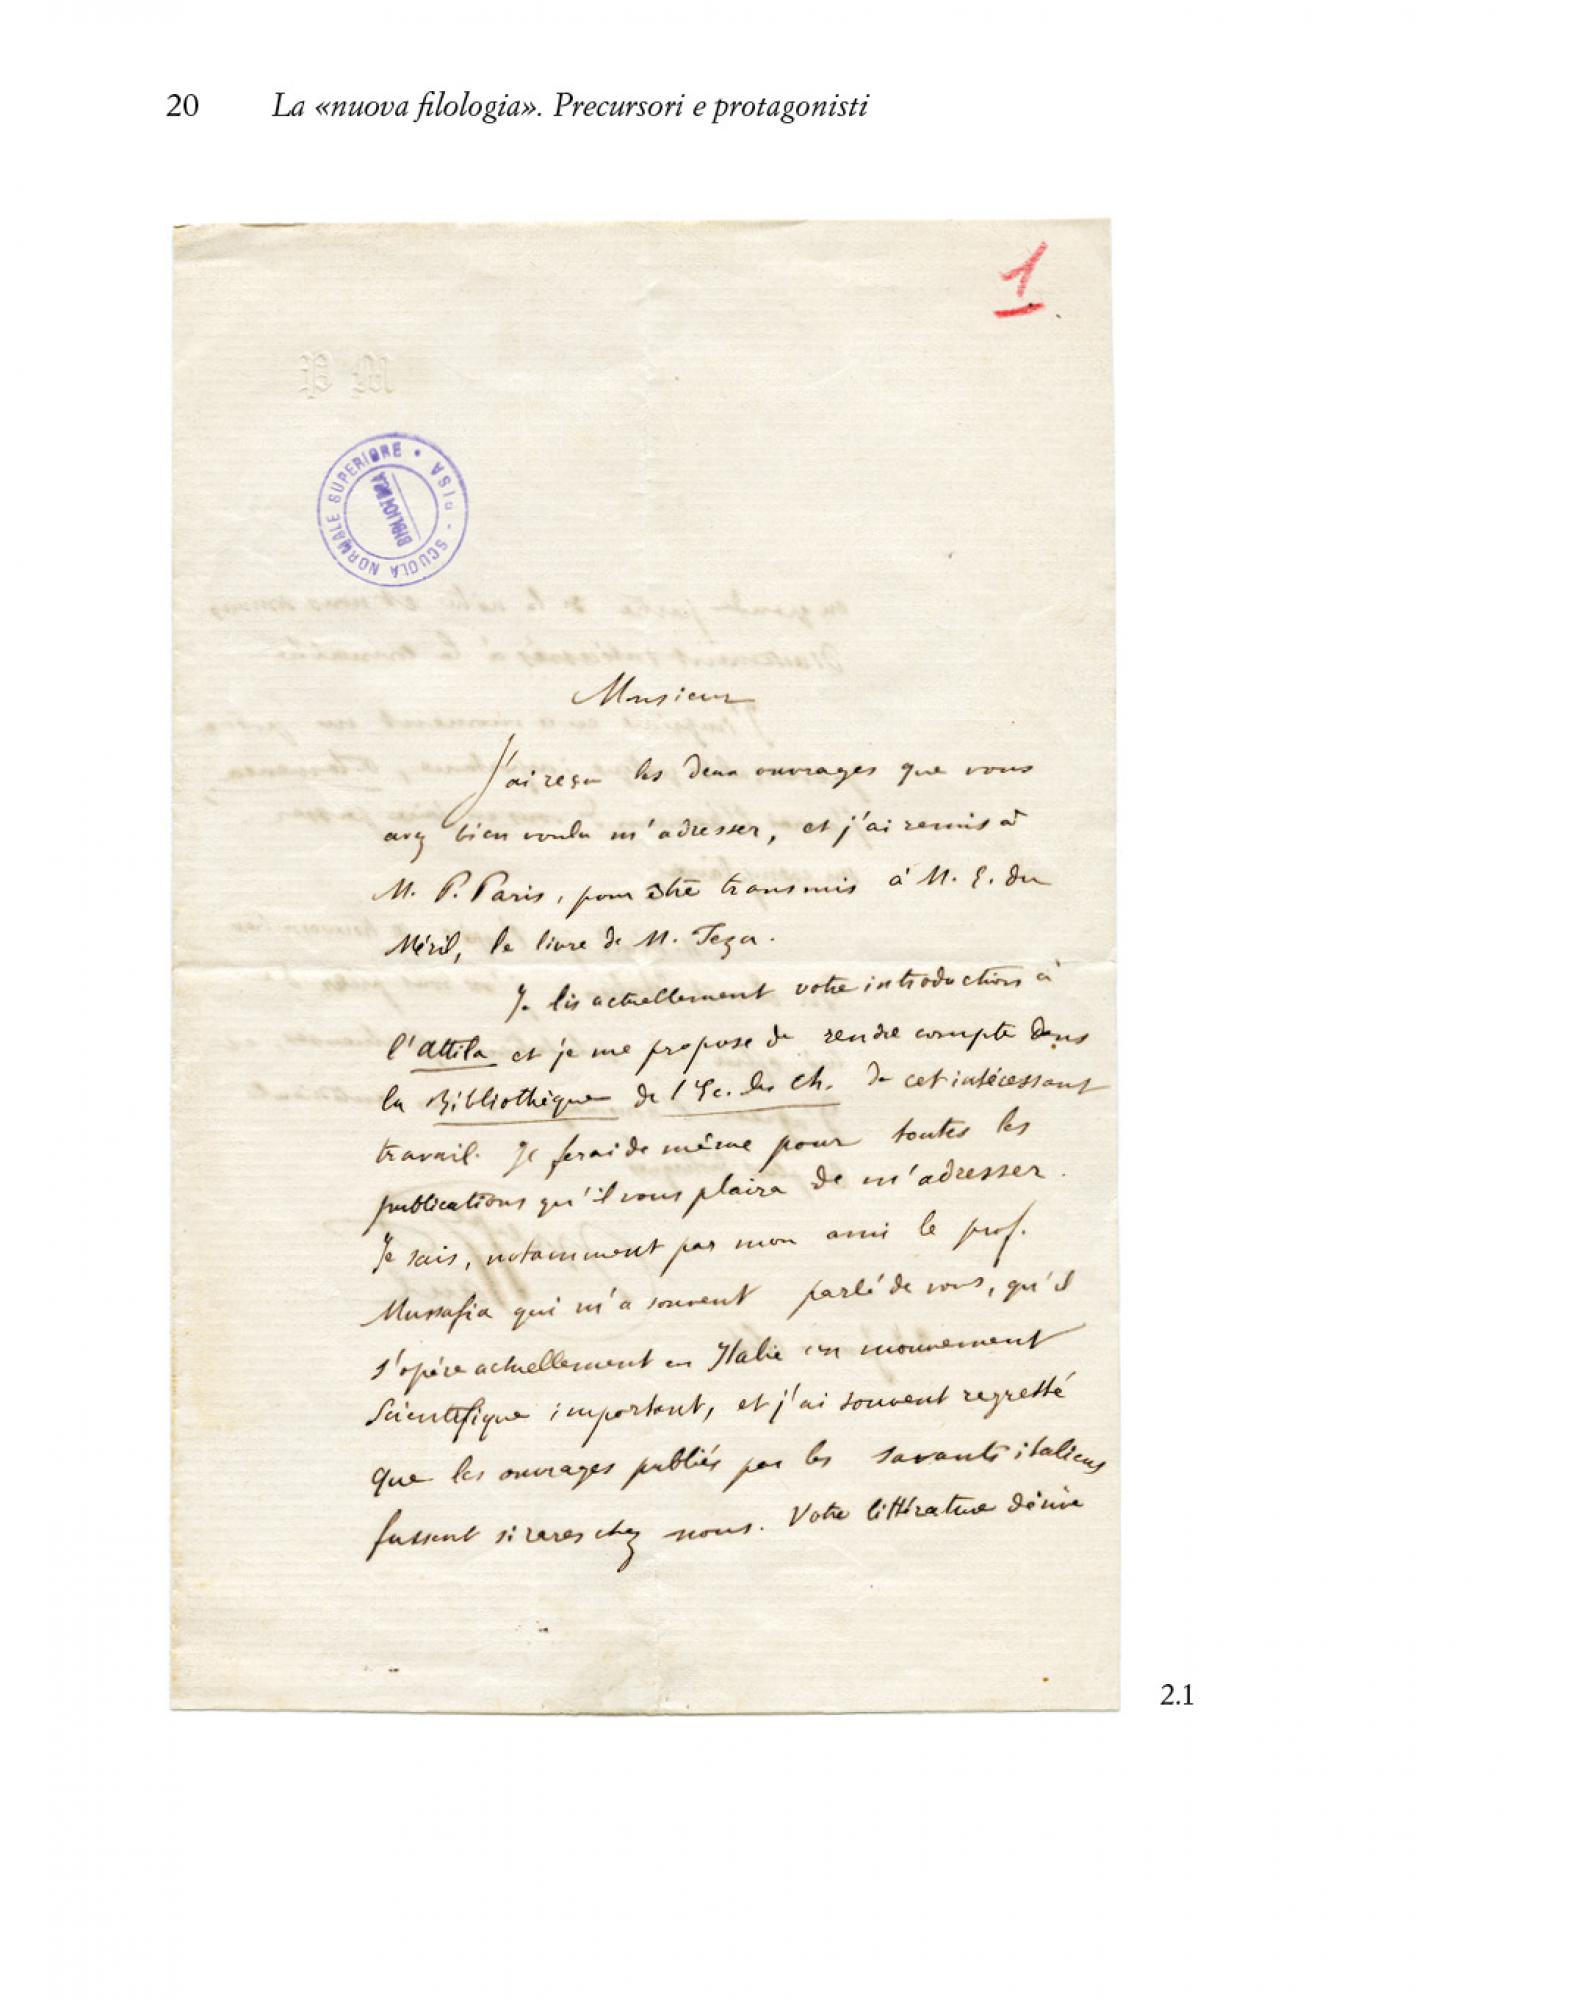 20 La «nuova filologia». Precursori e protagonisti
1
P M
SCUOLA NORMALE SUPERIORE • PISA -
BIBLIOTECA
Monsieur
J'ai reçu les deux ouvrages que vous
avez bien voulu m'adresser, et j'ai remis à
M. P. Paris, pour être transmis à M. E. du
Méril, le livre de M. Teza.
Je lis actuellement votre introduction à
l'Attila et je me propose de rendre compte dans
la Bibliothèque de l'Ec. des ch. de cet intéressant
travail. Je ferai de même pour toutes les
publications qu'il vous plaira de m'adresser.
Je sais, notamment par mon ami le prof.
Mussafia qui m'a souvent parlé de vous, qu'il
s'opère actuellement en Italie un mouvement
Scientifique important, et j'ai souvent regretté
que les ouvrages publiés par les savants italiens
fussent si rares chez nous. Votre littérature dérive
2.1